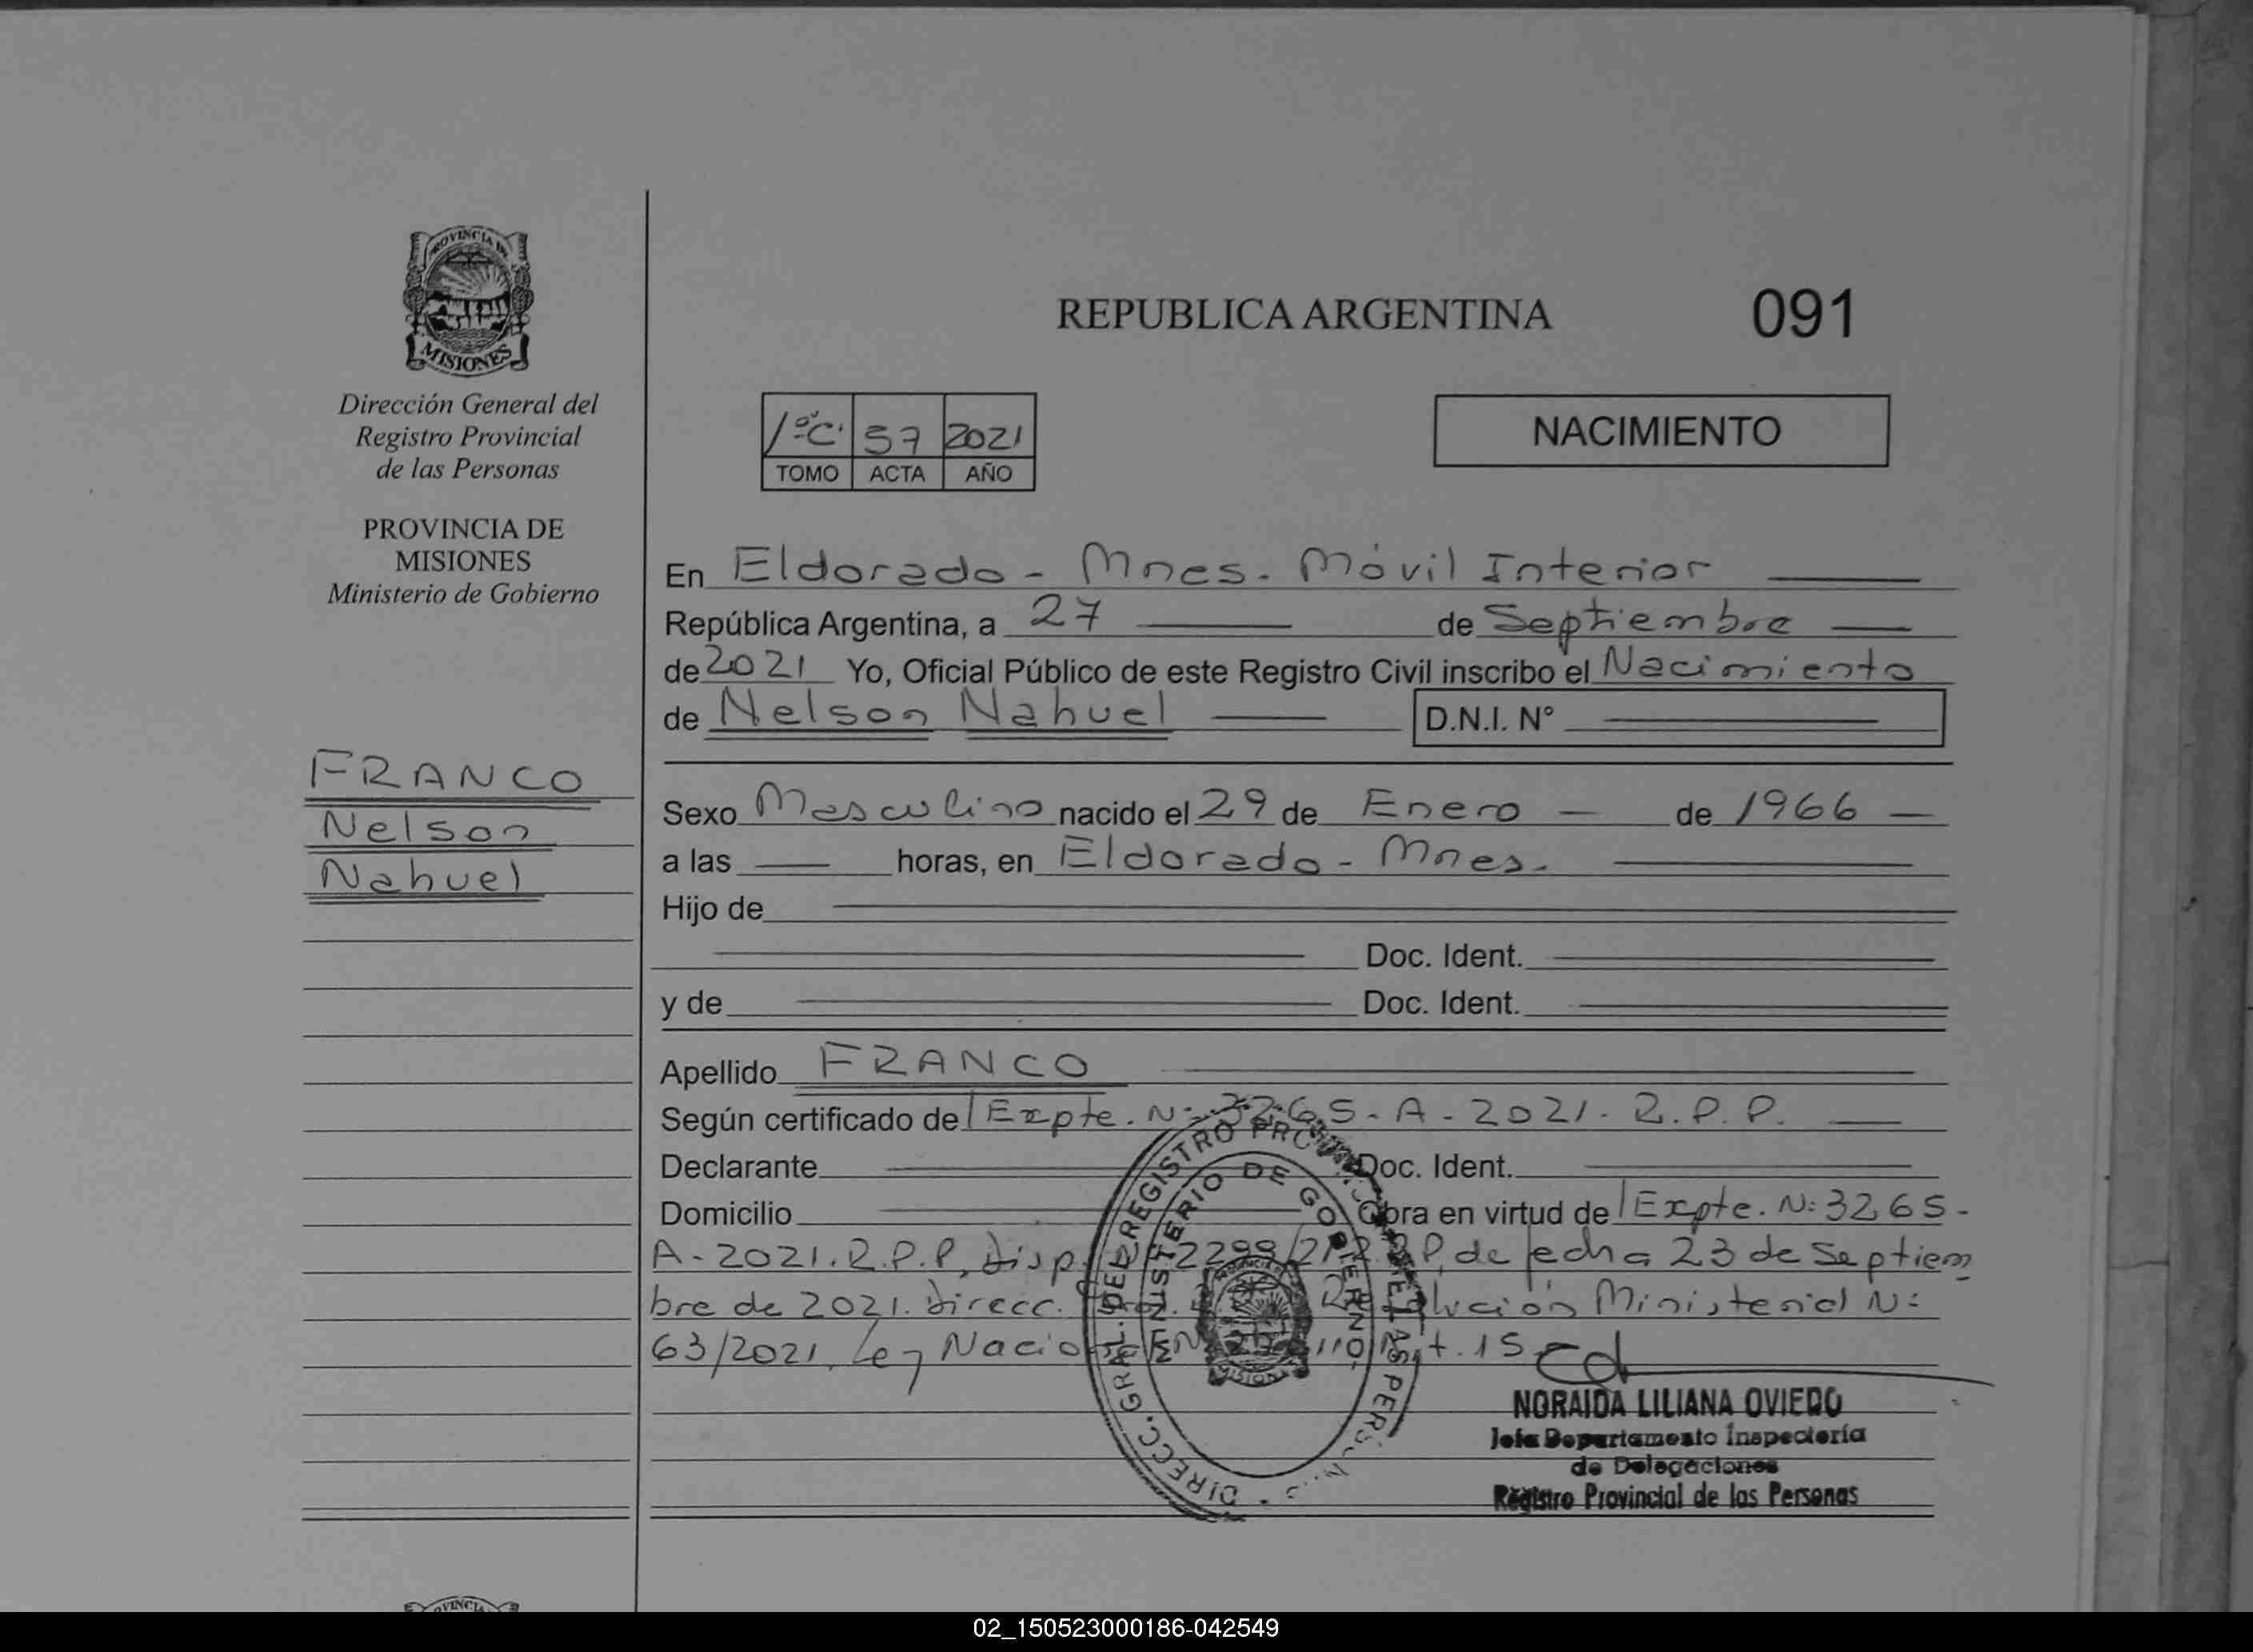 PROVINCIA DE
MISIONES
Dirección General del
Registro Provincial
de las Personas
PROVINCIA DE
MISIONES
Ministerio de Gobierno
FRANCO
Nelson
Nahuel
REPUBLICA ARGENTINA
091
1ºC. 57 2021
TOMO ACTA AÑO
NACIMIENTO
En Eldorado - Mnes. Móvil Interior
República Argentina, a 27 de Septiembre
de 2021 Yo, Oficial Público de este Registro Civil inscribo el Nacimiento
de Nelson Nahuel D.N.I. N°
Sexo Masculino nacido el 29 de Enero de 1966
a las horas, en Eldorado - Mnes.
Hijo de
Doc. Ident.
y de Doc. Ident.
Apellido FRANCO
Según certificado de Expte. N: 3265 - A - 2021. R.P.P.
Declarante Doc. Ident.
Domicilio Obra en virtud de Expte. N: 3265 -
A - 2021. R.P.P, Disp. 2299/21 R.P.P, de fecha 23 de Septiem
bre de 2021. Direcc. Resolución Ministerial N:
63/2021, Ley Nacional Art. 15
DIRECC. GRAL. DEL REGISTRO DE LAS PERSONAS
MINISTERIO DE GOBIERNO
MISIONES
NORAIDA LILIANA OVIEDO
Jefa Departamento Inspectoría
de Delegaciones
Registro Provincial de las Personas
02_150523000186-042549